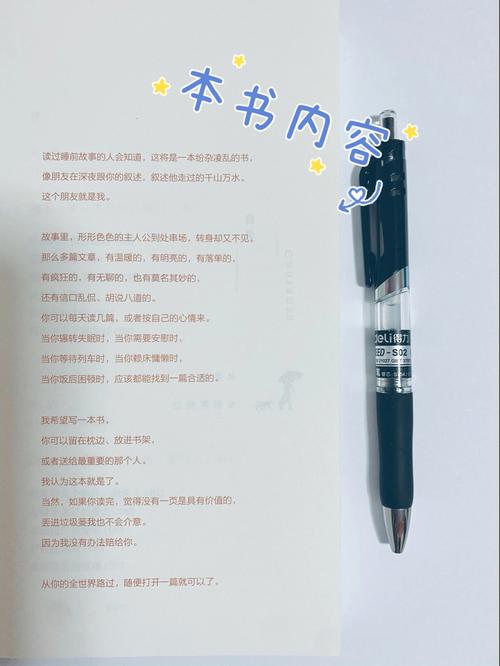 本书内容
读过睡前故事的人会知道，这将是一本纷杂凌乱的书，
像朋友在深夜跟你的叙述，叙述他走过的千山万水。
这个朋友就是我。
故事里，形形色色的主人公到处串场，转身却又不见。
那么多篇文章，有温暖的，有明亮的，有落单的，
有疯狂的，有无聊的，也有莫名其妙的，
还有信口乱侃、胡说八道的。
你可以每天读几篇，或者按自己的心情来。
当你辗转失眠时，当你需要安慰时，
当你等待列车时，当你赖床慵懒时，
当你饭后困顿时，应该都能找到一篇合适的。
我希望写一本书，
你可以留在枕边、放进书架，
或者送给最重要的那个人。
我认为这本就是了。
当然，如果你读完，觉得没有一页是具有价值的，
丢进垃圾篓我也不会介意。
因为我没有办法赔给你。
从你的全世界路过，随便打开一篇就可以了。
deli得力
EED-S02